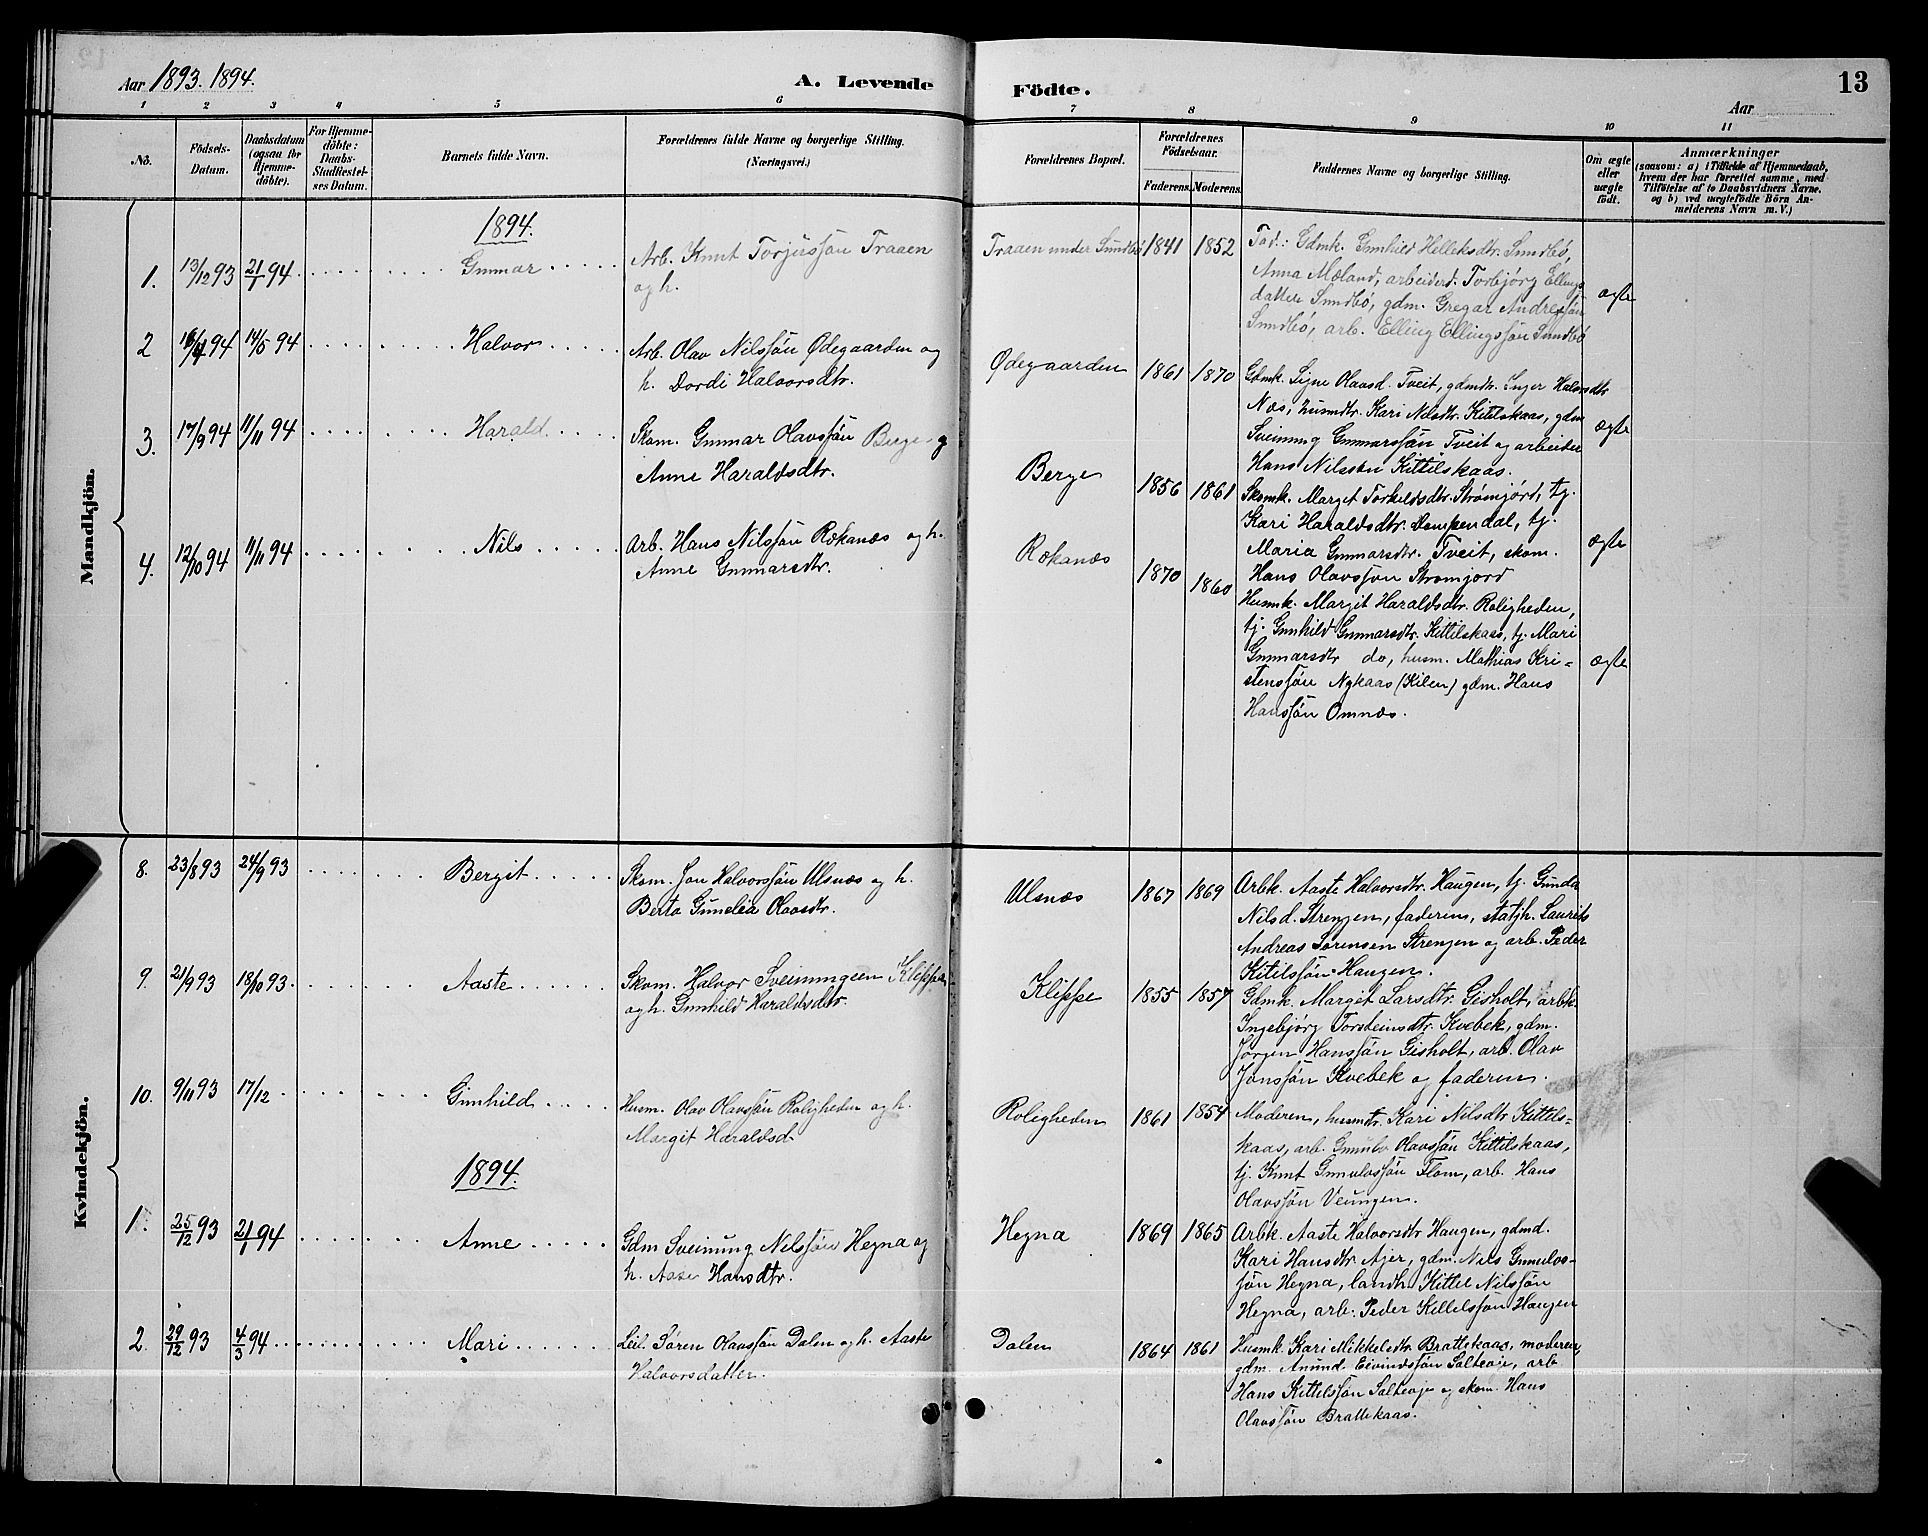 Aar 1893. 1894.
A. Levende Födte.
Aar
13
1 2 3 4 5 6 7 8 9 10 11
No.
Födsels-
Datum.
Daabsdatum
(ogsaa for
Hjemme-
döbte).
For Hjemme-
döbte:
Daabs-
Stadfæstel-
ses Datum.
Barnets fulde Navn.
Forældrenes fulde Navne og borgerlige Stilling.
(Næringsvei.)
Forældrenes Bopæl.
Forældrenes
Födselsaar.
Faderens. Moderens.
Faddernes Navne og borgerlige Stilling.
Om ægte
eller
uægte
født.
Anmærkninger
(saasom: a) i Tilfælde af Hjemmedaab,
hvem der har forrettet samme, med
Tilföielse af to Daabsvidners Navne.
og b) ved uægtefödte Börn An-
melderens Navn m. V.)
Mandkjön.
1894.
1. 13/12 93 21/1 94 Gunnar
Arb. Knut Torjussön Traaen
og h.
Traaen under Sundbö 1841 1852
Fad.: Gdmk. Gunhild Helleksdtr. Sundbö,
Anna Mæland, arbeiderd. Torbjörg Ellings
datter Sundbö, gdm. Gregar Andressön
Sundbö, arb. Elling Ellingssön Sundbö
ægte
2 94 14/5 94 Halvor
Arb. Olav Nilssön Ødegaarden og
h. Dordi Halvorsdtr.
Ødegaarden 1861 1870
Gdmk. Signe Olavsd. Tveit, gdmdtr. Inger Halvorsdtr
Næs, husmdtr. Kari Nilsdtr. Kittilskaas, gdm
Sveinung Gunnarssön Tveit og arbeider
Hans Nilssøn Kittilskaas.
ægte
3. 17/9 94 11/11 94 Harald
Skom. Gunnar Olavssön Berge og
Anne Haraldsdtr.
Berge 1856 1861
Skomk. Marget Torkildsdtr. Strömjord, tj.
Kari Haraldsdtr. Dampendal, tj.
Maria Gunnarsdtr. Tveit, skom.
Hans Olavssön Strömjord
ægte
4. 12/10 94 11/11 94 Nils
Arb. Hans Nilssön Rekanæs og h.
Anne Gunnarsdtr.
Rekanæs 1870 1860
Husmk. Margit Haraldsdtr. Roligheden,
tj. Gunhild Gunnarsdtr. Kittilskaas, tj. Mari
Gunnarsdtr do, husm. Mathias Kri-
stenssön Nykaas (Kilen) gdm. Hans
Hanssön Omnæs.
ægte
Kvindekjön.
8. 23/8 93 24/9 93 Bergit
Skom. Jon Halvorssön Ulsnæs og h.
Berta Gunelia Olavsdtr.
Ulsnæs 1867 1869
Arbk. Aaste Halvorsdtr. Haugen, tj. Gunda
Nilsd. Strengen, faderen, Laurits
Andreas Sørensen Strengen og arb. Peder
Kitilssön Haugen.
9. 21/9 93 18/10 93. Aaste
Skom. Halvor Sveinungsen Klippe
og h. Gunhild Haraldsdtr.
Klippe 1855 1857
Gdmk. Margit Larsdtr. Gisholt, arbk.
Ingebjörg Torsteinsdtr. Kvebek, gdm.
Jörgen Hanssön Gisholt, arb. Olav
Jonssön Kvebek og faderen.
10. 9/11 93 17/12 Gunhild
Husm. Olav Olavssön Roligheden og h.
Margit Haraldsd.
Roligheden 1861 1854
Moderen, husmdtr. Kari Nilsdtr Kittils-
kaas, arb. Gunulv Olavssön Kittilskaas,
tj. Knut Gunulvssön Flom, arb. Hans
Olavssön Veungen.
1894.
1. 25/12 93 21/1 94 Anne
Gdm Sveinung Nilssön Hegna og
h. Aase Hansdtr.
Hegna 1869 1865
Arbk. Aaste Halvorsdtr Haugen, gdmd.
Kari Hansdtr Ajer, gdm. Nils Gunulvs-
sön Hegna, landh. Kittel Nilssön
Hegna, arb. Peder Kittelssön Haugen
2. 29/12 93 4/3 94 Mari
Leil. Søren Olavssön Dalen og h. Aaste
Halvorsdatter.
Dalen 1864 1861
Husmk. Kari Mikkelsdtr Brattekaas, moderen,
gdm. Anund Eivindssön Salteøje, arb
Hans Kittilssön Salteøje og skom. Hans
Olavssön Brattekaas.